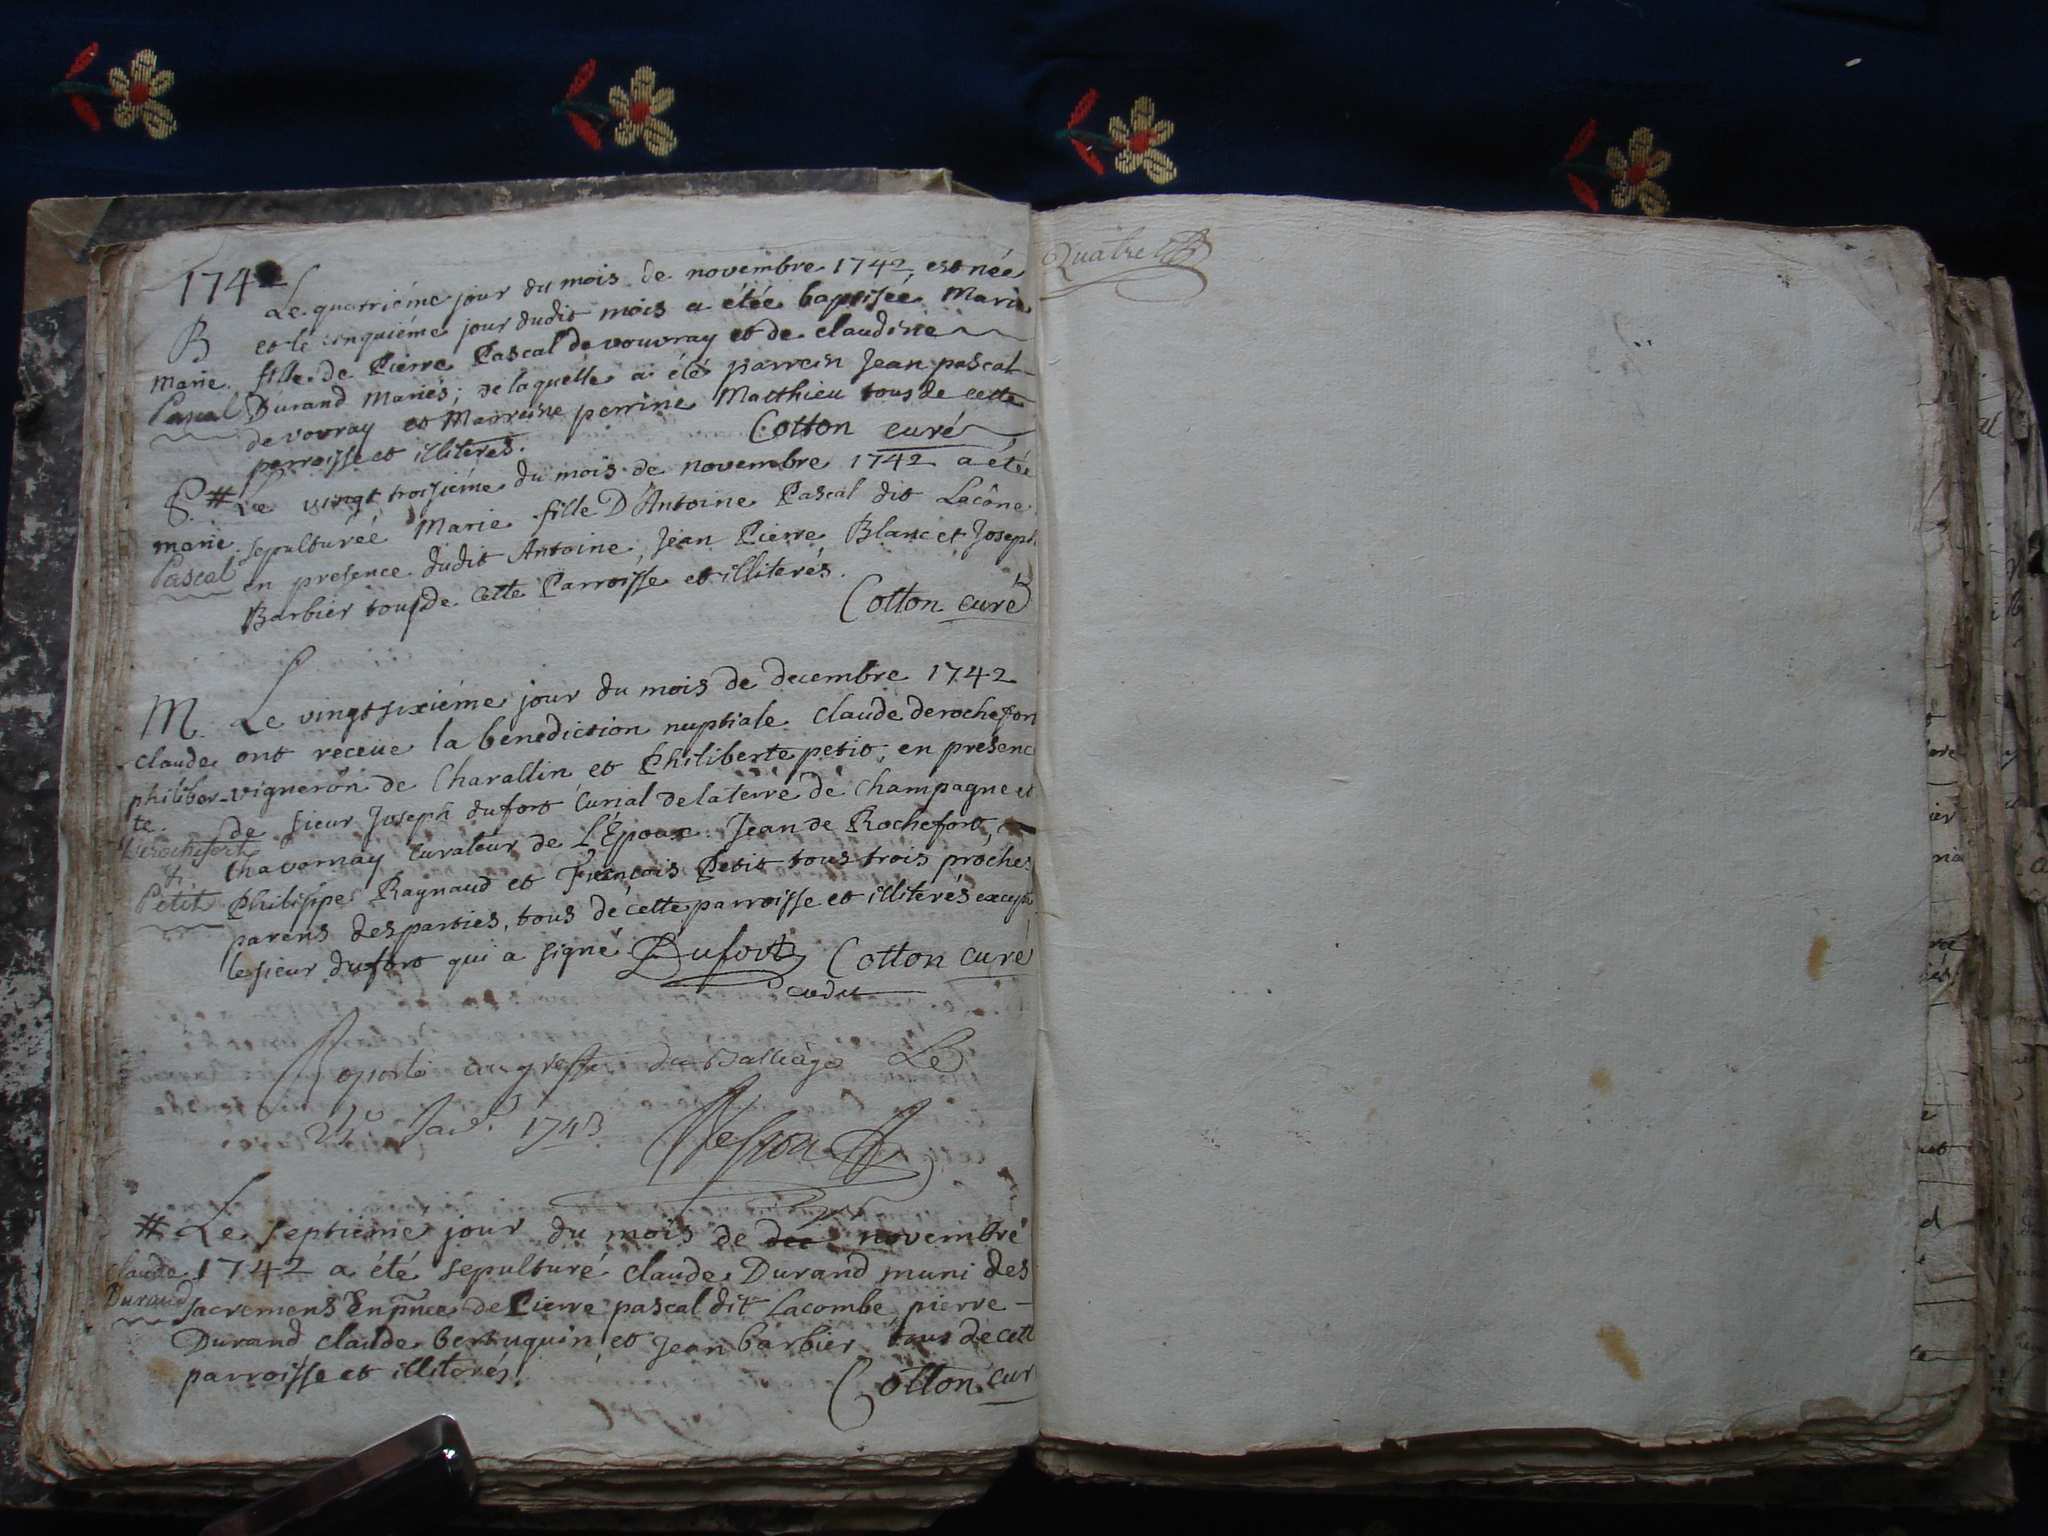 1742
Le quatriéme jour du mois de novembre 1742 est née
B et le cinquiéme jour dudit mois a étée baptisée Marie
marie fille de Pierre Pascal de vouvray et de claudine
Pascal Durand Mariés; de laquelle a été parrein Jean pascal
de vovray et Marreine perrine Matthieu tous de cette
parroisse et illiterés. Cotton curé
S. # Le vingt troisiéme du mois de novembre 1742 a étée
marie sepulturée Marie fille D'Antoine Pascal dit Lacône
Pascal en presence dudit Antoine, Jean Pierre Blanc et Joseph
Barbier tous de cette Parroisse et illiterés.
Cotton curé
M. Le vingt sixiéme jour du mois de decembre 1742
claude ont receue la benediction nuptiale claude derochefort
philiber- vigneron de Charallin et Philiberte petit, en presence
te. de sieur Joseph dufort Curial de la terre de Champagne et
derochefort Chavornay curateur de L'Epoux Jean de Rochefort,
et Philippe Raynaud et François Petit tous trois proches
Petit parens des parties, tous de cette parroisse et illiterés excepté
le sieur dufort qui a signé Dufort Cotton curé
Raporté au greffe du Balliage Le
Jav. 1743
# Le septiéme jour du mois de dec novembre
claude 1742 a été sepulturé claude Durand muni des
Durand sacremens En pnce de Pierre pascal dit Lacombe pierre
Durand claude bertuquin et Jean barbier tous de cett
parroisse et illiterés
Cotton cur
Quatre